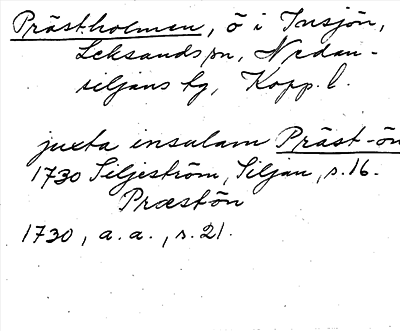 Prästholmen, ö i Insjön,
Leksands sn, Nedan-
siljans tg, Kopp. l.
juxta insulam Präst-ön
1730 Siljeström, Siljan, s. 16.
Præstön
1730, a. a., s. 21.